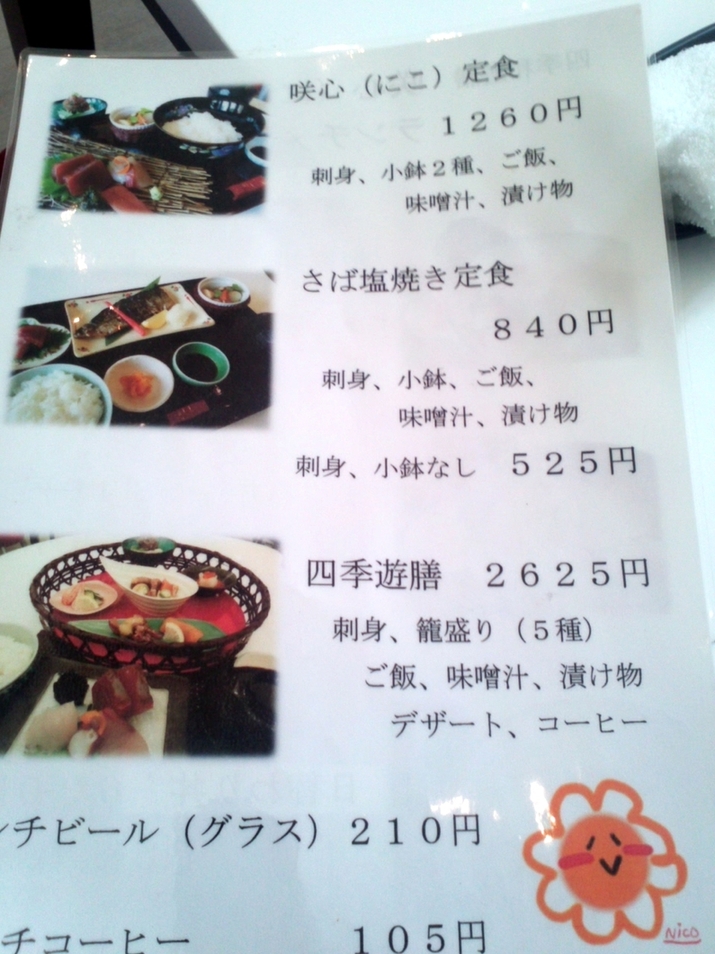 咲心（にこ）定食
１２６０円
刺身、小鉢２種、ご飯、
味噌汁、漬け物
さば塩焼き定食
８４０円
刺身、小鉢、ご飯、
味噌汁、漬け物
刺身、小鉢なし　５２５円
四季遊膳　２６２５円
刺身、籠盛り（５種）
ご飯、味噌汁、漬け物
デザート、コーヒー
ンチビール（グラス）２１０円
チコーヒー　１０５円
Nico